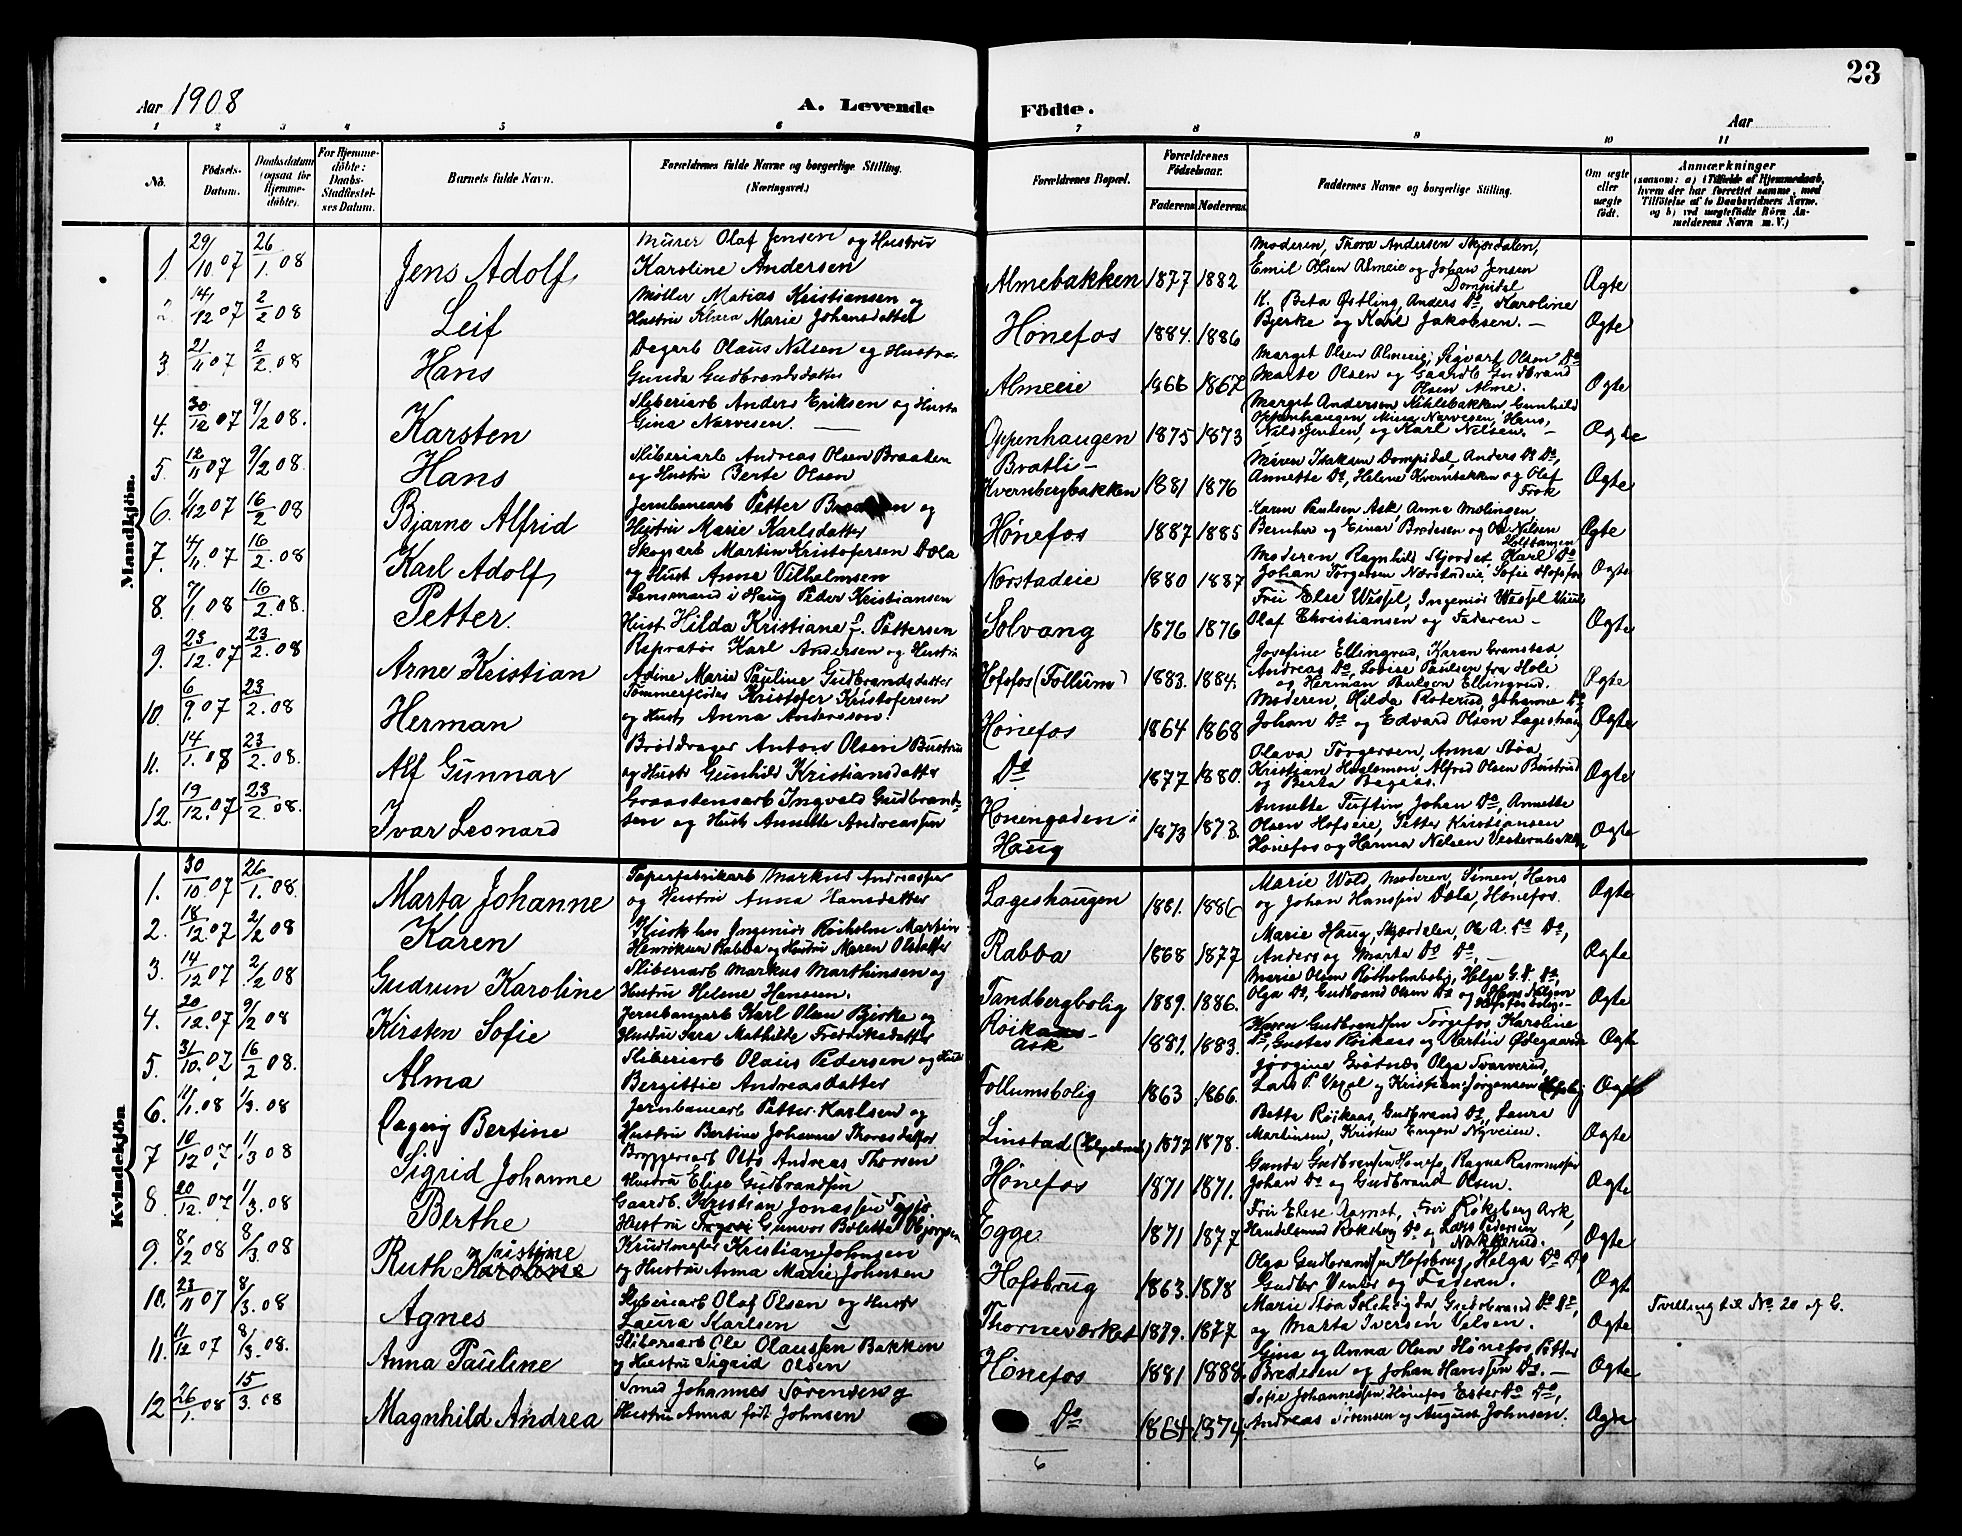 23
Aar 1908
A. Levende Födte.
Aar
1 2 3 4 5 6 7 8 9 10 11
No.
Födsels-Datum.
Daabsdatum (ogsaa for Hjemmedöbte).
For Hjemmedöbte: Daabs-Stadfæstelses Datum.
Barnets fulde Navn.
Forældrenes fulde Navne og borgerlige Stilling. (Næringsvei.)
Forældrenes Bopæl.
Forældrenes Födselsaar.
Faderens Moderens
Faddernes Navne og borgerlige Stilling.
Om ægte eller uægte födt.
Anmærkninger
(saasom: a) i Tilfælde af Hjemmedaab, hvem der har forrettet samme, med Tilföielse af to Daabsvidners Navne. og b) ved uægtefödte Börn Anmelderens Navn m. V.)
Mandkjön.
1. 29/10.07 26/1.08 Jens Adolf Murer Olaf Jensen og Hustru
Karoline Andersen Almebakken 1877 1882 Moderen, Thora Andersen Skjørdalen,
Emil Olsen Almeie og Johan Jensen
Dompidal Ægte
2. 14/12 07 2/2 08 Leif Møller Matias Kristiansen og
Hustru Klara Marie Johansdatter Hønefos 1884. 1886 K. Beta Østling, Anders Do, Karoline
Bjerke og Karl Jakobsen. Ægte
3. 21/11 07 2/2.08 Hans Dagarb Olaus Nilsen og Hustru
Gunda Gudbrandsdatter Almeeie 1866 1867 Marget Olsen Almeeie, Sigvart Olsen Do
Marte Olsen og Gaardb Gudbrand
Olsen Alme. Ægte
4. 30/12 07 9/2 08. Karsten Sliberiarb Anders Eriksen og Hustru
Gina Narvesen. Oppenhaugen 1875 1873 Marget Andersen Kihlebakken, Gunhild
Oppenhaugen, Mina Narvesen, Hans,
Nils Jensen, og Karl Nilsen. Ægte
5. 12/11 07 9/2 08. Hans Sliberiarb Andreas Olsen Braaten
og Hustru Berte Olsen Bratli-
Kvernbergbakken 1881 1876 Maren Isaksen Dompidal, Anders Do Do,
Annette Do, Helene Kvernbakken og Olaf
Frok Ægte
6. 1/12 07 16/2 08 Bjarne Alfrid Jernbanearb Petter og
Hustru Marie Karlsdatter Hønefos 1887 1885 Karen Paulsen Ask, Anna Molingen
Bernhar og Einar Bredesen og Ole Nilsen Ægte
7. 4/11.07 16/2 08 Karl Adolf Skogsarb Martin Kristofersen Dæla
og Hust Anna Vilhelmsen Norstadeie 1880 1887 Moderen, Ragnhild Skjordet, Karl Do
Johan Torgersen Nærstadeie, Sofie Hofsfos Ægte
8. 7/1.08 16/2.08. Petter Lensmand i Haug Peder Kristiansen
Hust Hilda Kristiane f. Pettersen Solvang 1876 1876 Fru Else Wessel, Ingeniør Wessel
Olaf Christiansen og Faderen Ægte
9. 23/12.07 23/2.08 Arne Kristian Karl Andersen og Hustru
Adine Marie Pauline Gudbrandsdatter Hofsfos (Follum) 1883. 1884. Josefine Ellingrud, Karen Granstad
Andreas Do, Lovise Paulsen fra Hole
og Herman Paulsen Ellingrud. Ægte
10. 6/9.07 23/2.08 Herman Tømmerfløder Kristofer Kristofersen
og Hust Anna Anderssen. Hønefos 1864 1868 Moderen, Hilda Roterud, Johanne Do
Johan Do og Edvard Olsen Lageshaug Ægte
11. 14/1.08 23/2.08. Alf Gunnar Brøddrager Anton Olsen Bustrud
og Hust Gunhild Kristiansdatter Do 1877 1880. Olava Torgersen, Anna Støa
Kristian Haglemoen, Alfred Olsen Bustrud
og Berta Ægte
12. 19/12.07 23/2.08. Ivar Leonard Graastensarb Ingvald Gudbrand-
sen og Hust Annette Andreassen Hønengaden i
Haug 1873 1873. Annette Tuftin, Johan Do, Annette
Olsen Hofseie, Petter Kristiansen
Hønefos og Hanna Nilsen Ægte
Kvindekjön
1. 30/10.07 26/1.08. Marta Johanne Papirfabrikarb Markus Andreassen
og Hustru Anna Hansdatter Lageshaugen 1881. 1886 Marie Wold, Moderen, Simen, Hans
og Johan Hanssen Dæla, Hønefos. Ægte
2. 18/12.07 2/2 08 Karen Ingeniør Røisholm Martin
Henriksen Rabba og Hustru Maren Olsdatter Rabba 1868 1877 Marie Haug, Skjærdalen, Ole A. Do Do,
Anders og Marta Do Do, Ægte
3. 14/12 07 2/2 08 Gudrun Karoline Sliberiarb Markus Marthinsen og
Hustru Helene Hanssen. Tandbergbolig 1889. 1886. Marie Olsen Røisholmbolig, Helga G. Do Do,
Olga Do, Gudbrand Olsen Do og Hans Nilsen Ægte
4. 20/12.07 9/2 08 Kirsten Sofie Jernbanearb Karl Olsen Bjerke og
Hustru Sara Mathilde Fredrikedatter Røikaas-
Ask 1881. 1883. Karen Gudbrandsen Torgefos, Karoline
Do, Gustav Røikaas og Martin Ødegaarde Ægte
5. 31/10.07 16/2 08. Alma Sliberiarb Olaus Pedersen og Hust
Bergittie Andreasdatter Follumsbolig 1863 1866. Jørgine Grøtnæs Olga Tvarverud,
Lars P. og Kristian Jørgensen Ægte
6. 11/1.08 1/3.08 Dagny Bertine Jernbanearb Petter Karlsen og
Hustru Bertine Johanne Thorasdatter Linstad 1877 1878. Betta Røikaas, Gudbrand Do, Laura
Martinsen, Kristen Engen Nyveien. Ægte
7 10/12 07. 1/3 08 Sigrid Johanne Bryggeriarb Otto Andreas Thorsen
Hustru Elise Gudbrandsen Hønefos 1871 1871. Gunda Gudbrandsen Hønefos, Ragna Rasmussen
Johan Do og Gudbrand Olsen. Ægte
8. 20/12.07 1/3.08 Berthe Gaardb. Kristian Jonassen
Hustru Gunvor Bolette Egge 1871 1877 Fru Elise Aamot, Fru Røksberg Ask,
Handelsmand Røksberg Do og Lars Pedersen
Nakkerud. Ægte
9. 8/2 08 8/3.08 Ruth Kristine Krudtmester Kristian Johnsen
og Hustru Anna Marie Johnsen Hofsbrug 1863. 1878 Olga Gudbrandsen Hofsbrug, Helga Do Do
Gudbr Venter og Faderen. Ægte
10. 23/11 07 8/3.08 Agnes Sliberiarb Olaf Olsen og Hustr
Laura Karlsen Thorneværket 1879. 1877 Marie Støa, Gudbrand Do Do,
og Marta Iversen Velsen. Ægte Tvilling til No. 20 af C.
11. 11/12 07 8/3.08. Anna Pauline Sliberiarb Ole Olaussen Bakken
og Hustru Sigrid Olsen Hønefos 1881 1888. Gina og Anna Olsen Hønefos, Petter
Bredesen og Johan Hanssen Do. Ægte
12 26/1.08 15/3.08 Magnhild Andrea Smed Johannes Sørensen og
Hustru Anna født Johnsen Do 1864. 1874. Sofie Johannessen Hønefos Ester Do Do,
Andreas Sørensen og August Johnsen. Ægte
6